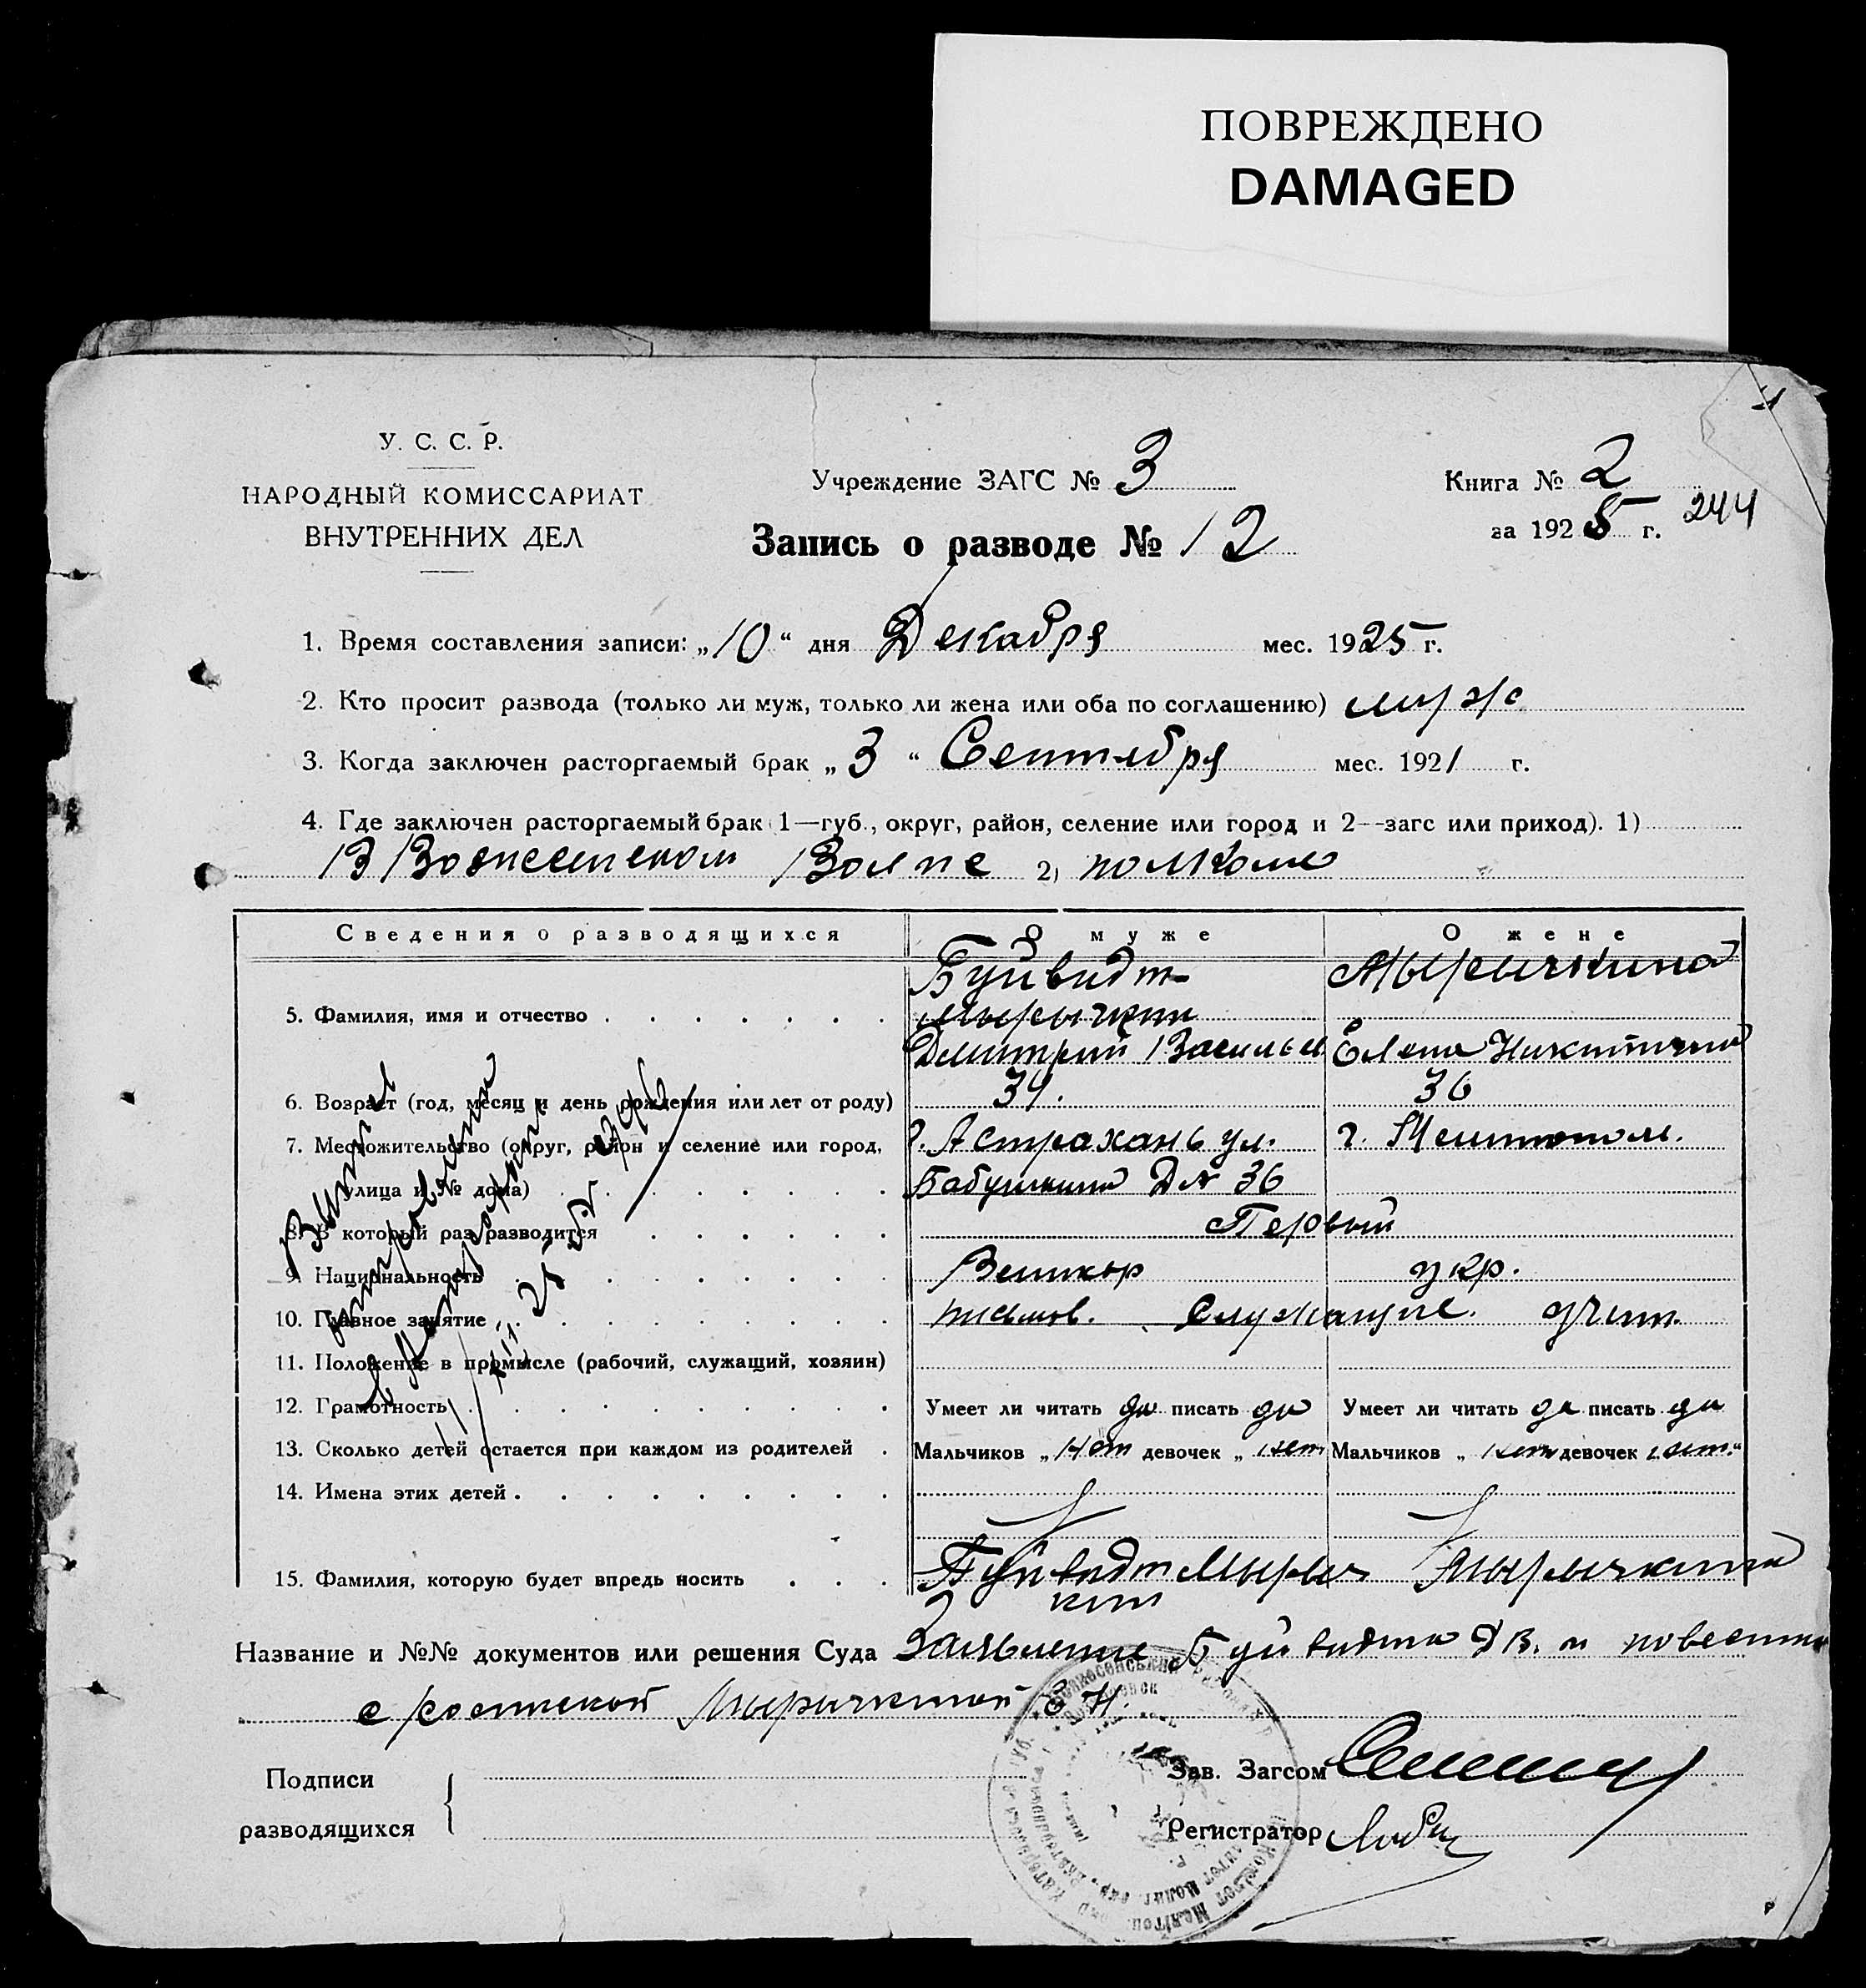 ПОВРЕЖДЕНО
DAMAGED
У. С. С. Р.
НАРОДНЫЙ КОМИССАРИАТ
ВНУТРЕННИХ ДЕЛ
Учреждение ЗАГС № 3
Книга № 2
за 1925 г. 244
Запись о разводе № 12
1. Время составления записи: „10“ дня Декабря мес. 1925 г.
2. Кто просит развода (только ли муж, только ли жена или оба по соглашению) муж
3. Когда заключен расторгаемый брак „3“ Сентября мес. 1921 г.
4. Где заключен расторгаемый брак (1—губ., округ, район, селение или город и 2—загс или приход). 1)
В Вознесенском 2)
Сведения о разводящихся О муже О жене
Буйвидт- Мырычкина
5. Фамилия, имя и отчество Мырычкин
Дмитрий Васильев Елена Никитична
6. Возраст (год, месяц и день рождения или лет от роду) 34. 36
7. Местожительство (округ, район и селение или город, г. Астрахань ул. г. Мелитополь.
улица и № дома) Бабушкина Д № 36
8. В который раз разводится Первый
9. Национальность Великор укр.
10. Главное занятие письмов. Служащие. учит.
11. Положение в промысле (рабочий, служащий, хозяин)
12. Грамотность Умеет ли читать да писать да Умеет ли читать да писать да
13. Сколько детей остается при каждом из родителей Мальчиков „нет девочек „нет Мальчиков „нет девочек нет“
14. Имена этих детей
15. Фамилия, которую будет впредь носить Буйвидт Мырыч Мырычкина
кин
Название и №№ документов или решения Суда Заявление Буйвидта Д В. и повестка
с роспиской Мырычкиной Е Н.
Подписи
разводящихся
Зав. Загсом
Регистратор